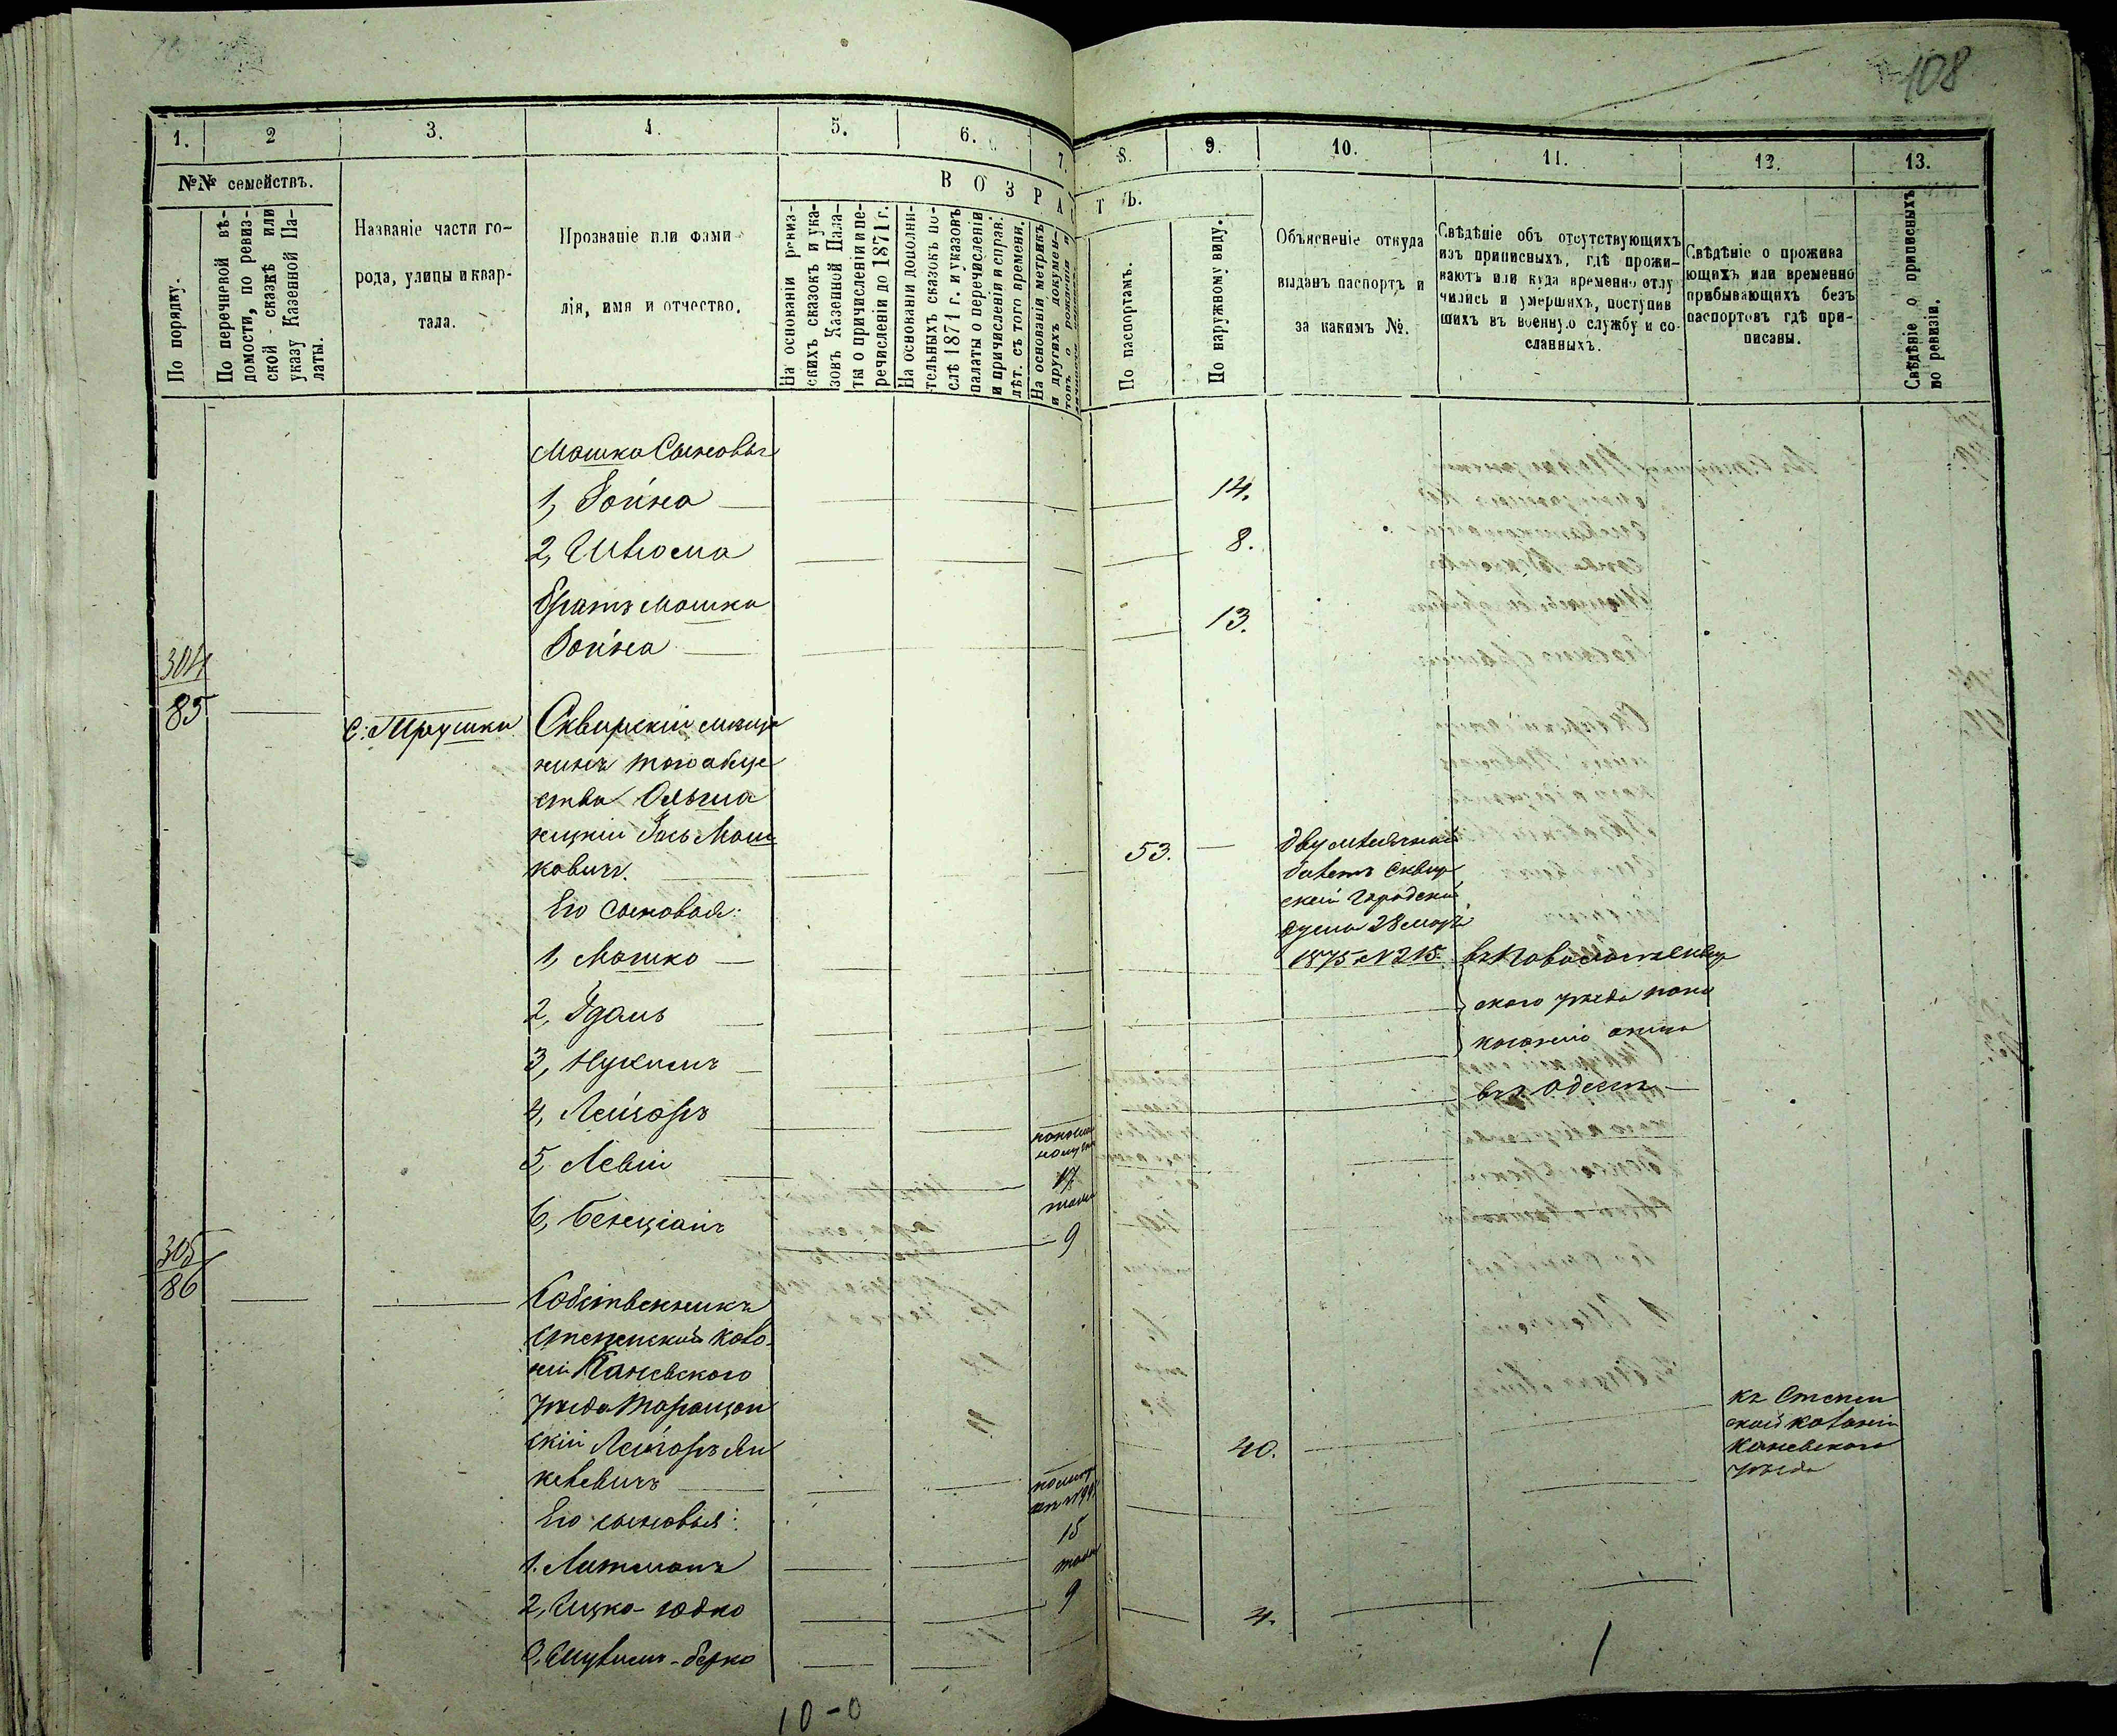 108
1. 2 3. 4. 5. 6. 7. 8. 9. 10. 11. 12. 13.
№№ семействъ.
По порядку.
По перечневой вѣ-
домости, по ревиз-
ской сказкѣ или
указу Казенной Па-
латы.
Названіе части го-
рода, улицы и квар-
тала.
Прозваніе или фами-
лія, имя и отчество.
ВОЗРАСТЪ.
На основаніи ревиз-
скихъ сказокъ и ука-
зовъ Казенной Пала-
ты о причисленіи и пе-
речисленіи до 1871 г.
На основаніи дополни-
тельныхъ сказокъ по-
слѣ 1871 г. и указовъ
палаты о перечисленіи
и причисленіи и справ.
лѣт. съ того времени.
На основаніи метрикъ
и другихъ докумен-
товъ о рожденіи и
По паспортамъ.
По наружному виду.
Объясненіе откуда
выданъ паспортъ и
за какимъ №.
Свѣдѣніе объ отсутствующихъ
изъ приписныхъ, гдѣ прожи-
ваютъ или куда временно отлу
чились и умершихъ, поступив
шихъ въ военную службу и со-
сланныхъ.
Свѣдѣніе о прожива
ющихъ или временно
прибывающихъ безъ
паспортовъ гдѣ при-
писаны.
Свѣдѣніе о приписныхъ
по ревизіи.
Мошка Сыновья
1, Гойна 14.
2, Шлома 8.
братъ Мошка
Гойна 13.
304
85
Сквирскій мѣща
нинъ того обще
ства
Мош
ковичъ. 53.
Двумѣсячный
билетъ Сквир
ской Городской
думы 28 мар.
1875 № 215.
Его сыновья:
1, Мошко
2,
3, Нухимъ
4, Лейзоръ
5, Левій 17
6, Бенціанъ 9
Сквир
ского уѣзда
въ г. Одессѣ
305
86
Собственникъ
Степенской коло
ніи Каневского
уѣзда Таращан
скій Лейзоръ Ян
келевичъ 40.
къ Степен
ской колоніи
Каневского
уѣзда
Его сыновья:
1. Литманъ 15
2, Ицко-Юдко 9
3, Шулимъ-Берко 4.
10-0